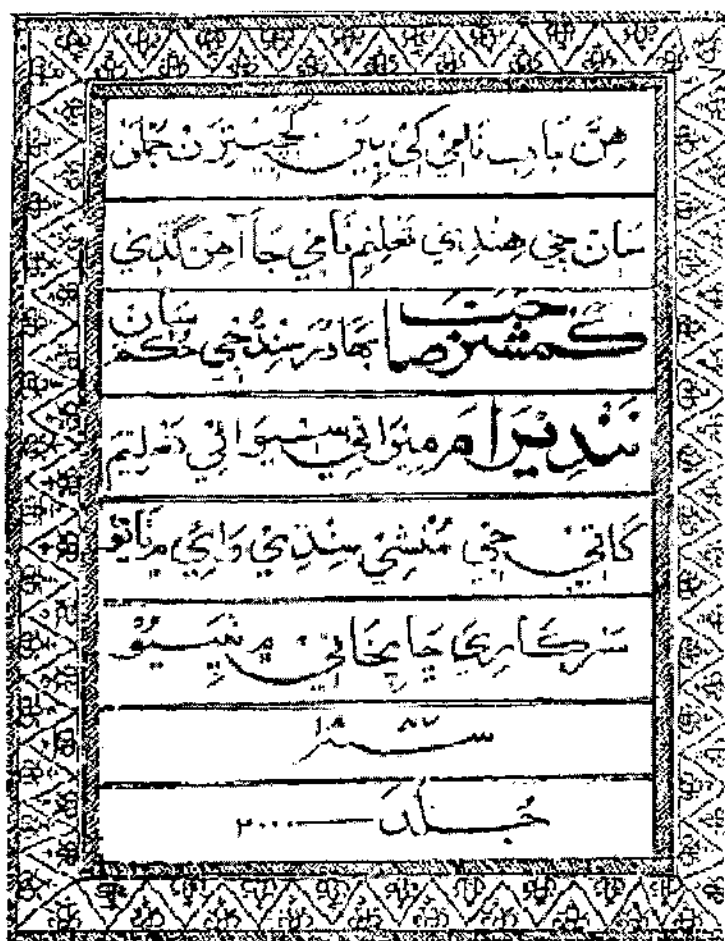 هِنَ بَابَ نَامي کي ٻِيَنِ جُملَن
سَان جي هِندِي تَعلِيم نَامي جَا آهِن گَڏي
ڪمشنر صاحب بهَادُر سِنڌ جي حُڪم سَان
نَندِيرَام مِيرَاڻي سيوَاڻي تَعلِيم
کَاتي جي مُنشي سِنڌِي وَائِي ۾
سَرڪَارِي ڇَاپخَاني ۾
جُلد ۲۰۰۰